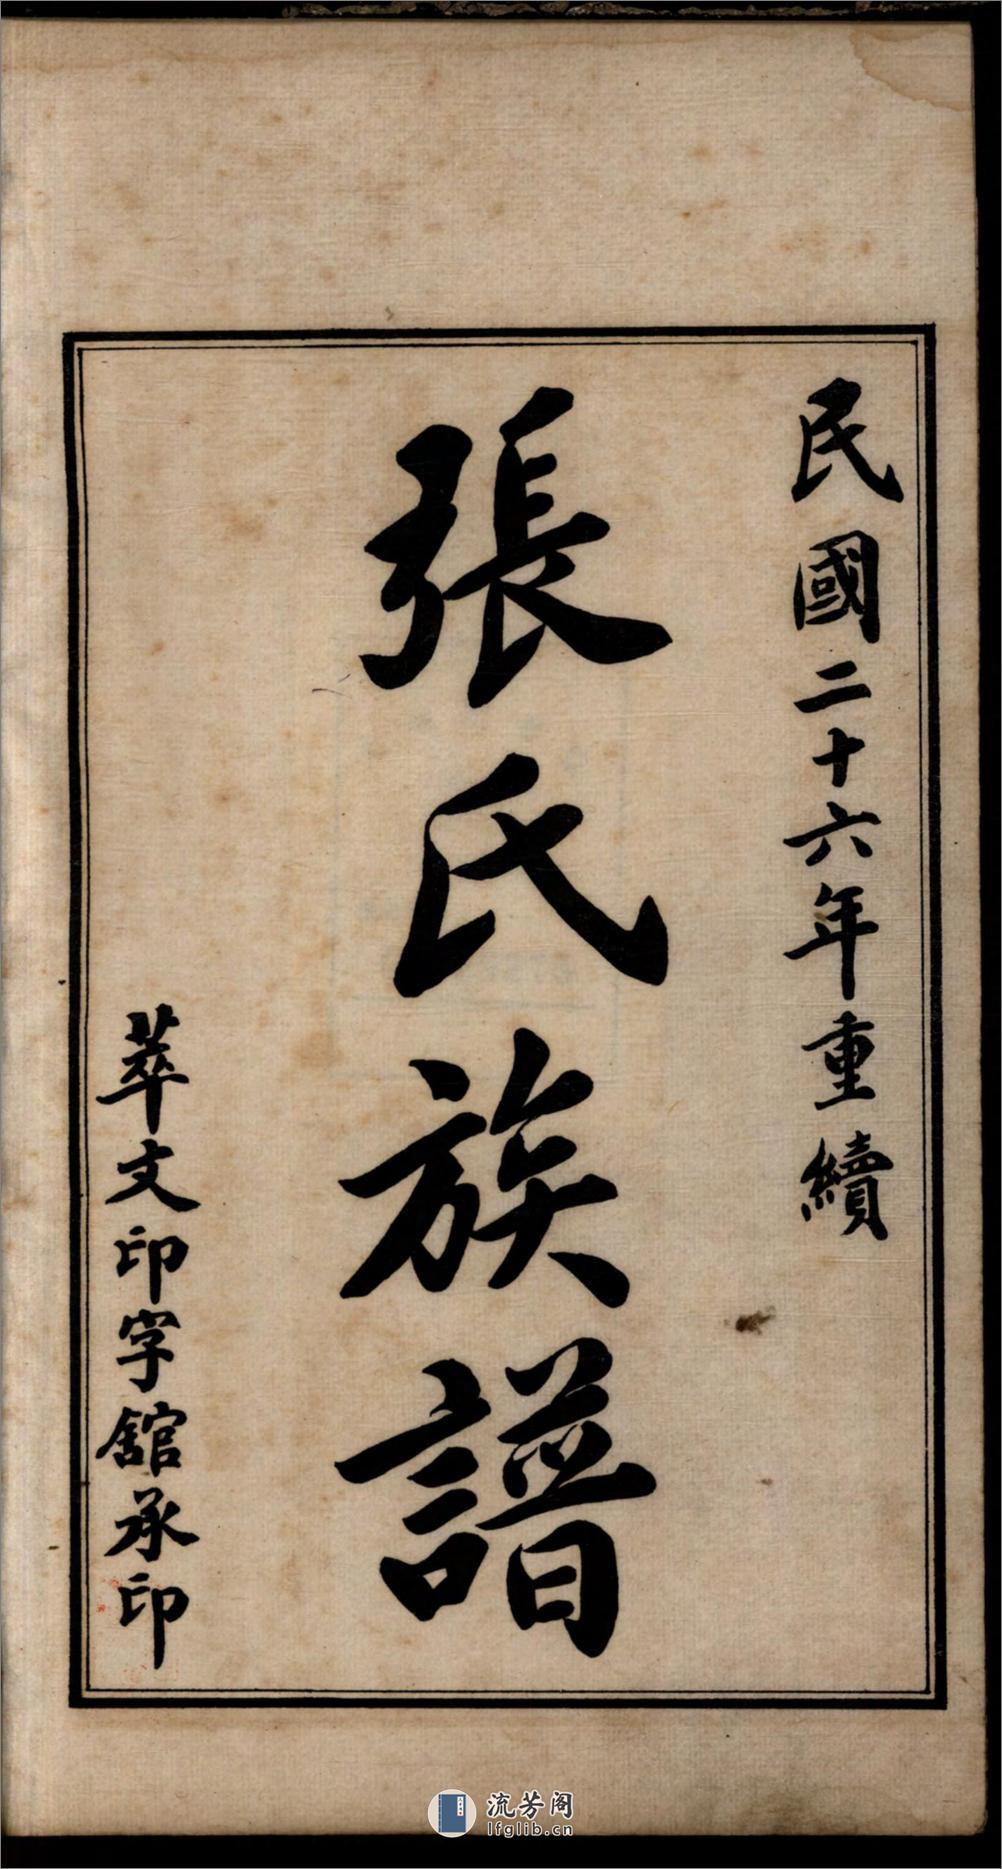 民國二十六年重續
張氏族譜
萃文印字館承印
流芳阁
lfglib.cn